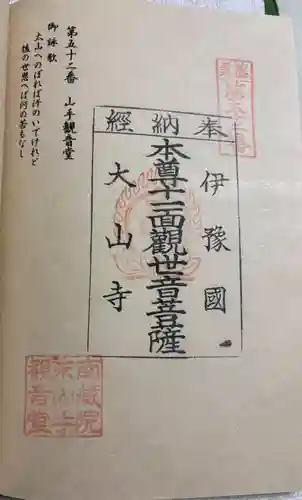 第五十二番
奉納經
伊豫國
本尊十一面觀世音菩薩
大山寺
第五十二番　山手観音堂
御詠歌
太山へのぼれば汗のいでけれど
後の世思へば何の苦もなし
南蔵院
觀音堂